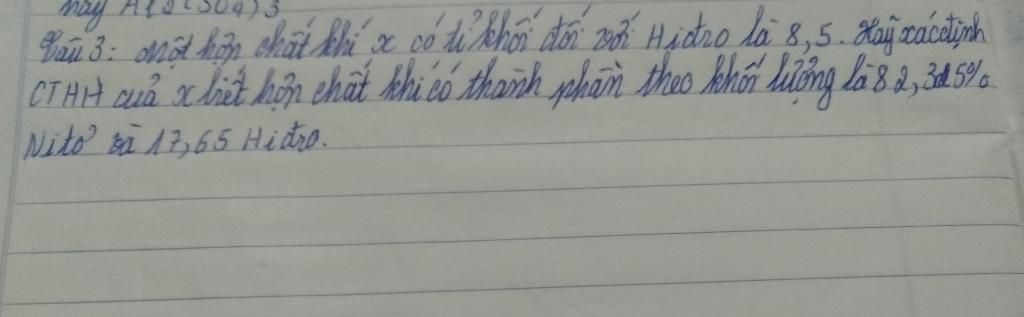 này Al2(SO4)3
Câu 3: một hợp chất khí x có tỉ khối đối với Hiđro là 8,5. Hãy xác định
CTHH của x biết hợp chất khí có thành phần theo khối lượng là 82,35%
Nitơ và 17,65 Hiđro.